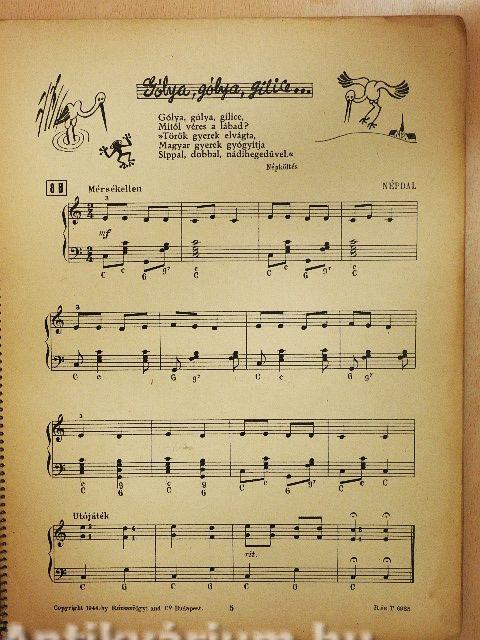 Gólya, gólya, gilice...
Gólya, gólya, gilice,
Mitől véres a lábad?
»Török gyerek elvágta,
Magyar gyerek gyógyítja
Síppal, dobbal, nádihegedűvel.«
Népköltés
8
Mérsékelten
NÉPDAL
3
mf
C c G g⁷ c C c G g⁷ c
C C
3
C c G g⁷ C c G g⁷
3
c g c
C G C C G C
Utójáték
rit.
C G C G C C
Copyright 1944. by Rózsavölgyi and Cº Budapest.
5
R. és T 6985
Antikvárium.hu